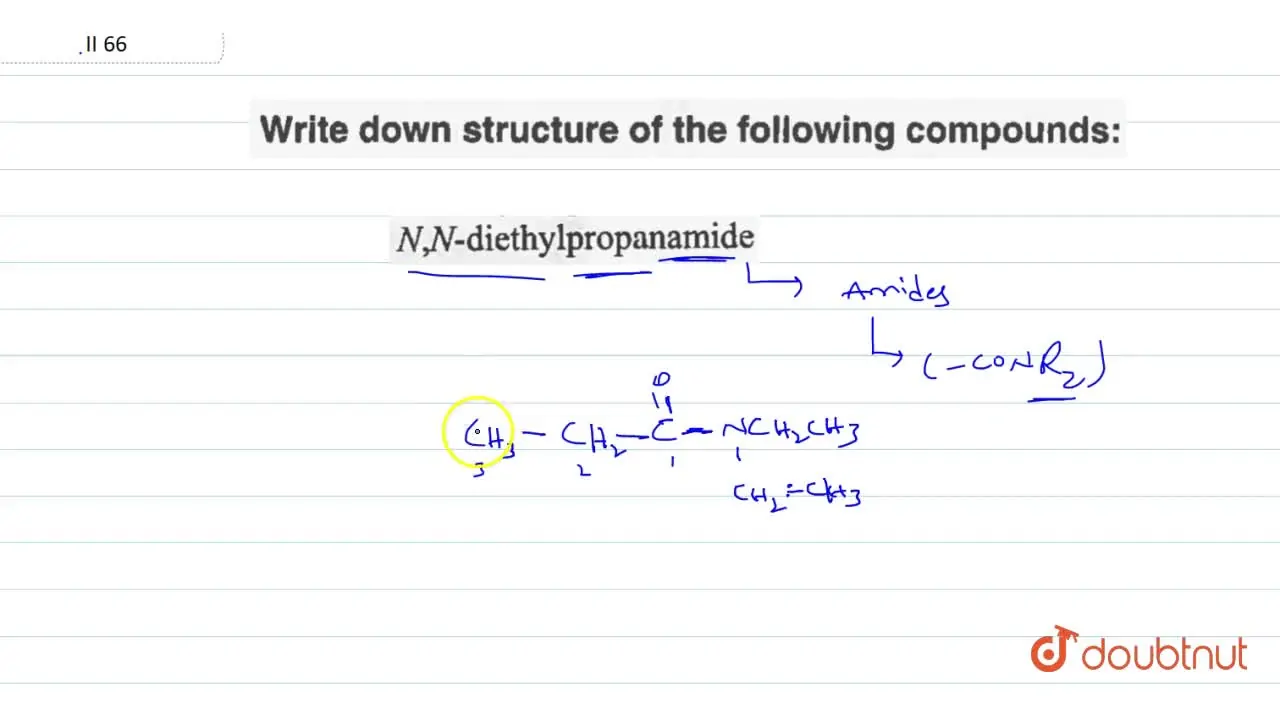 .II 66
Write down structure of the following compounds:
N,N-diethylpropanamide
Amides
(-CONR2)
O
CH3 - CH2 - C - NCH2CH3
3 2 1
CH2-CH3
doubtnut